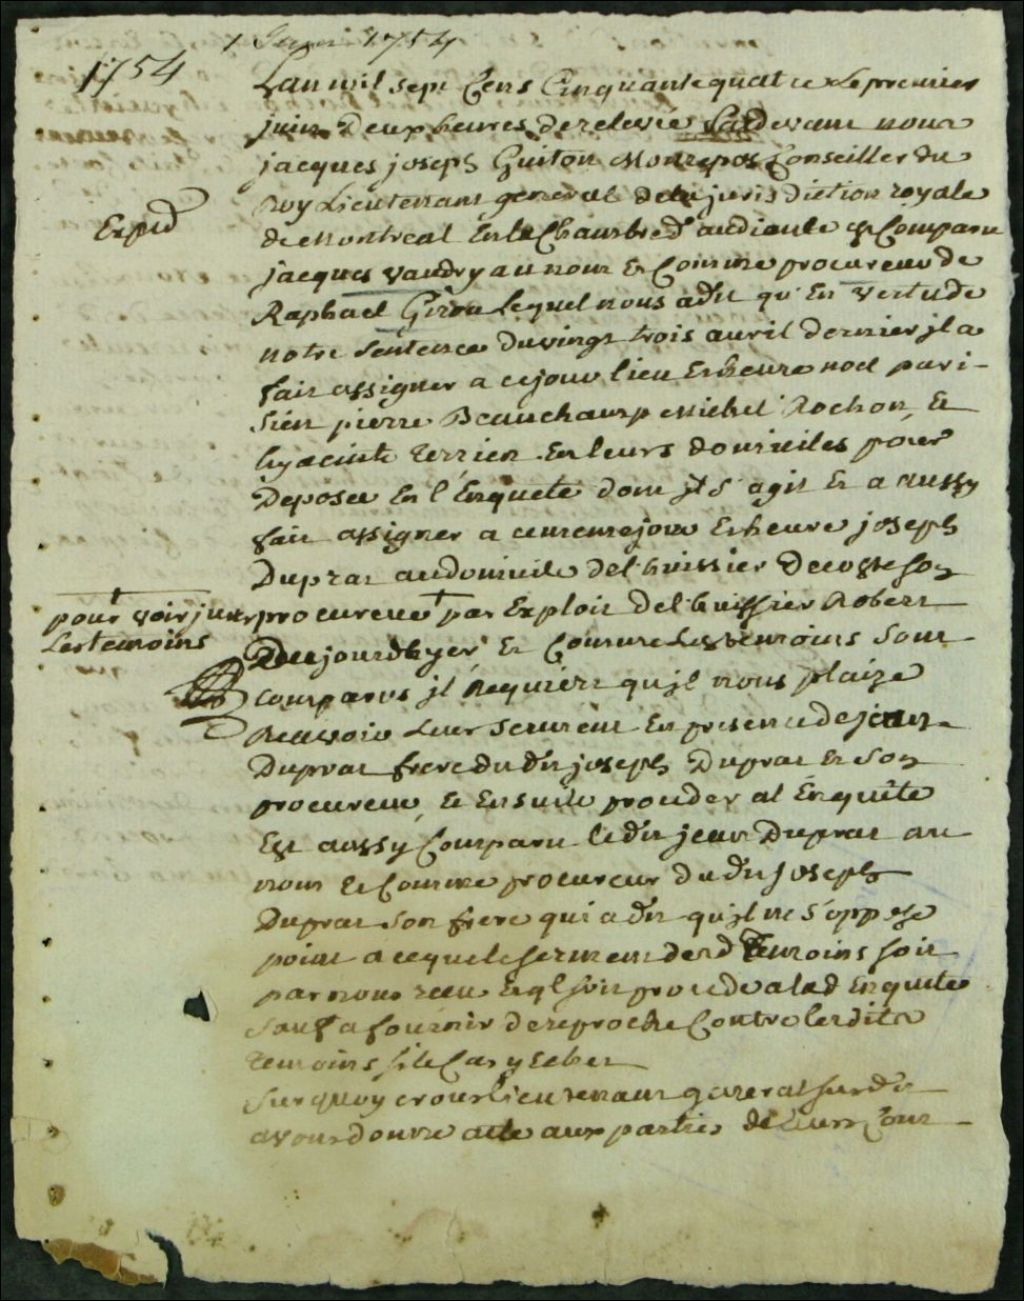 1 juin 1754
1754
Lan mil sept Cens Cinquante quatre le premier
juin Deux heures de relevée Pardevant nous
jacques joseph Guiton Monrepos Conseiller du
Roy Lieutenant general de la jurisdiction royale
Exped
de Montreal En la Chambre d'audiance est Comparu
jacques Vaudry au nom Et Comme procureur de
Raphael Girou Lequel nous a dit qu'En Vertu de
notre Sentence du vingt trois avril dernier jl a
fait assigner a ce jour lieu Et heure noel pari-
sien pierre Beauchamp Michel Rochon, Et
hyacinte Terrien En leurs domiciles pour
Deposer En l'Enquete dont jl S'agit Et a aussy
fait assigner a ce meme jour Et heure joseph
Duprat au domicile de l'huissier Decoste son
pour voir jurer
les temoins
procureur + par Exploit de l'huissier Robert
Du jourdhyer Et Comme Les temoins Sont
comparus jl Requiert qu'jl nous plaize
Recevoir Leur Serment En presence de jean
Duprat frere du dit joseph Duprat Et Son
procureur, Et Ensuite proceder a l'Enquête
Est aussy Comparu le dit jean Duprat au
nom Et Comme procureur du dit Joseph
Duprat Son frere qui a dit qu'jl ne S'oppose
point a ceque le serment desd temoins soit
par nous receu Et ql soit procedé a lad Enquete
Sauf a fournir de reproche Contre lesdits
temoins si le Cas y Echet
Sur quoy nous lieutenant general susdit
avons donné acte aux parties de Leurs Com-